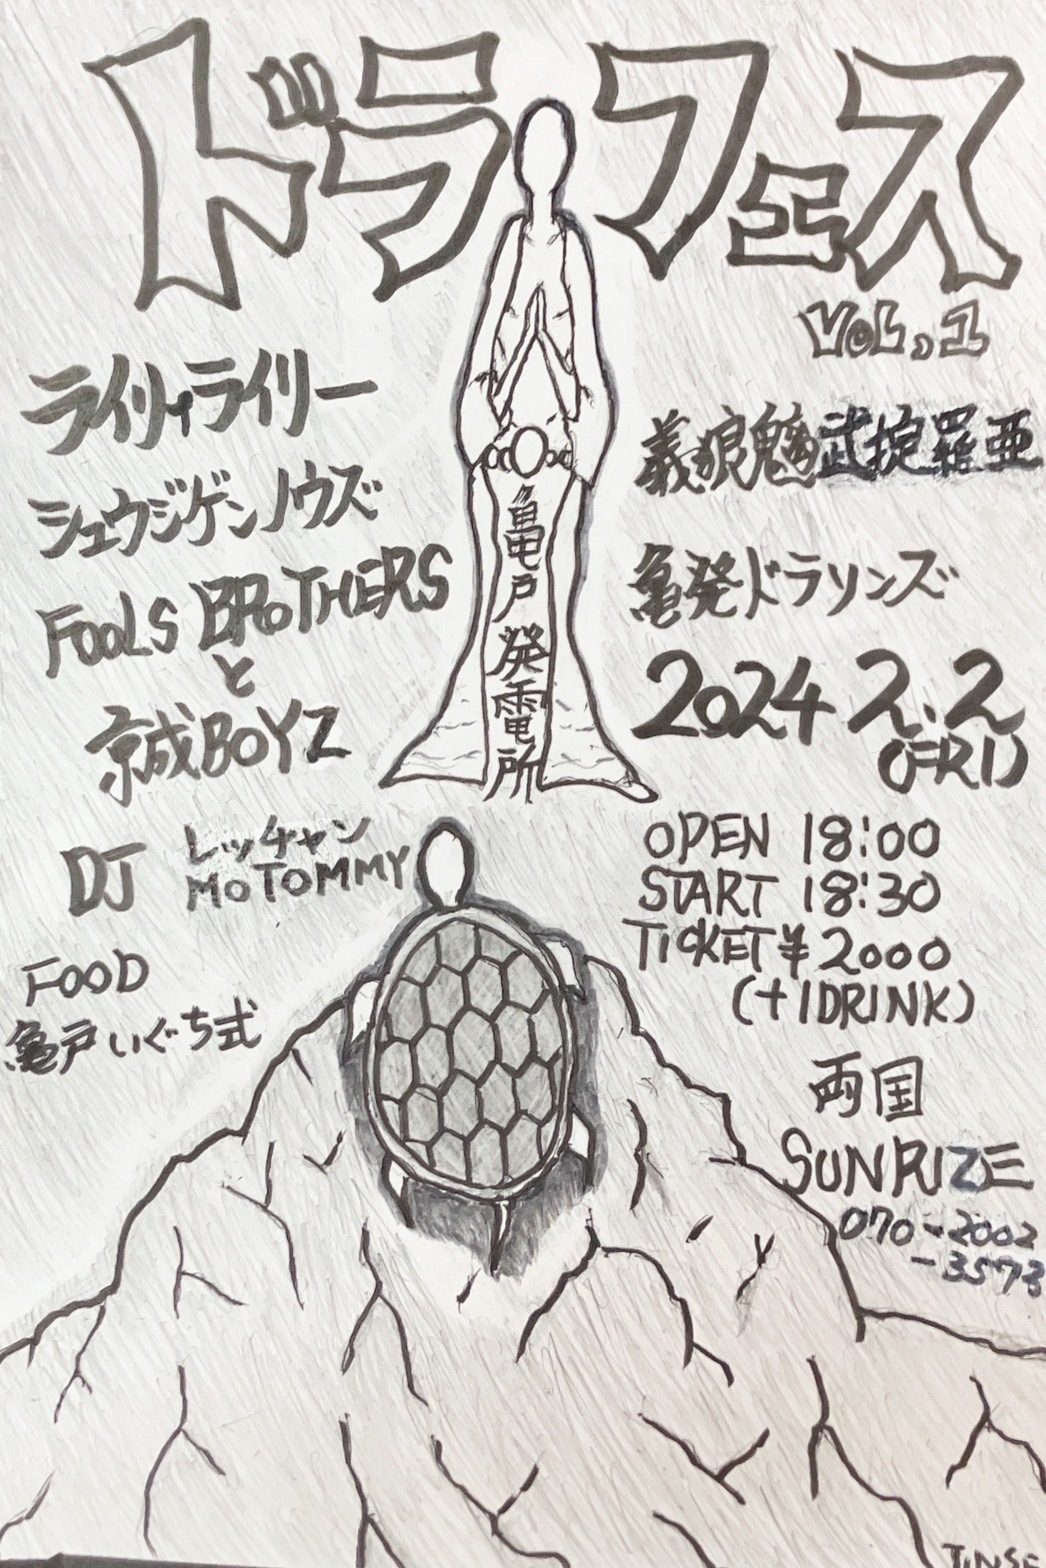 ドラフェス
VOL.1
ライリィライリー
シュウジゲンノウズ
FOOLS BROTHERS
と
京成BOYZ
義狼魑武掟羅亜
亀発ドラソンズ
2024 2.2
(FRI)
亀戸発電所
DJ レッチャン
MOTOMMY
FOOD
亀戸いぐち式
OPEN 18:00
START 18:30
TICKET ¥2000
(+1DRINK)
両国
SUNRIZE
070-2002
-3573